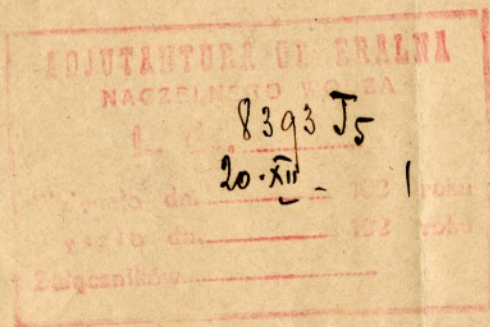 ADJUTANTURA GENERALNA
NACZELNEGO WODZA
L. 8393 J5
20·XII 192 1 roku
weszło dn. 192 roku
Załączników